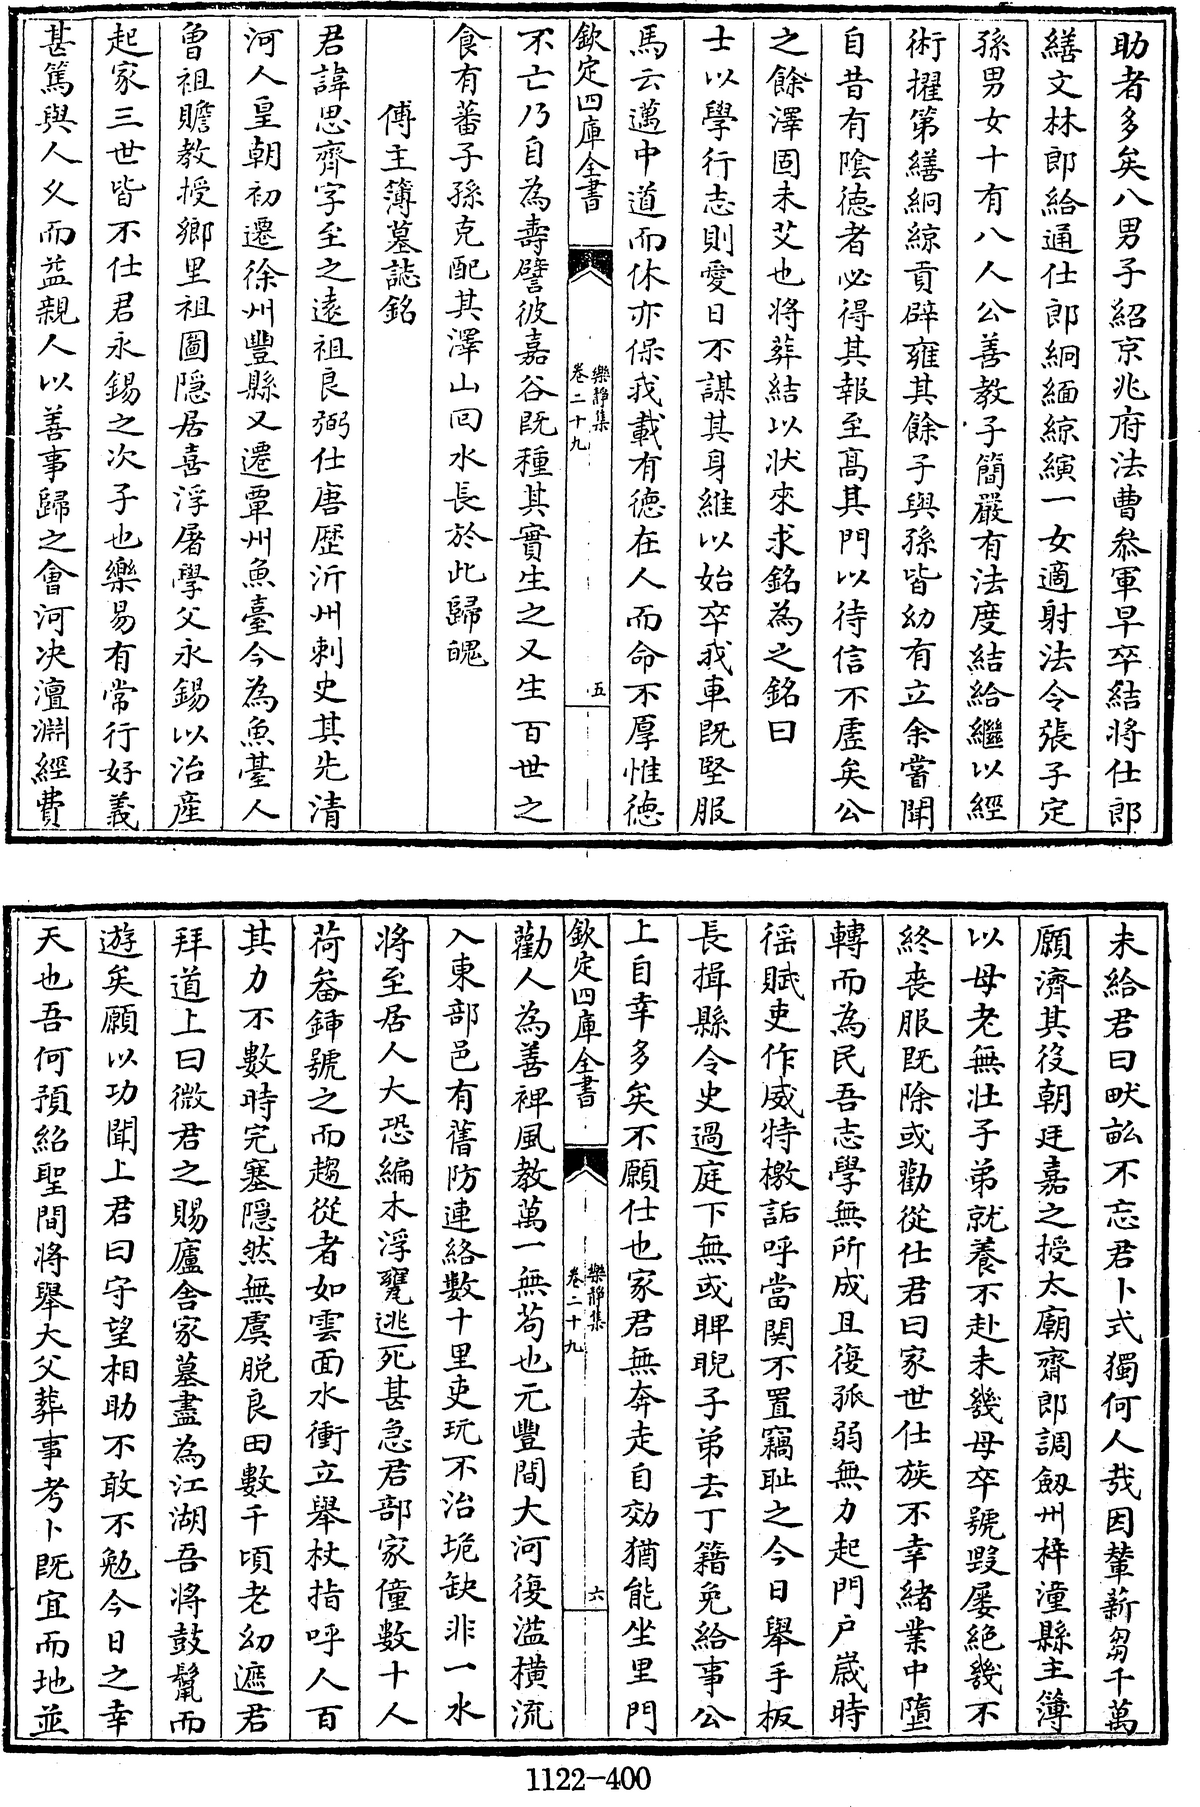 助者多矣八男子紹京兆府法曹叅軍早卒結將仕郎
繕文林郎給通仕郎絅緬綡縯一女適射法令張子定
孫男女十有八人公善教子簡嚴有法度結給繼以經
術擢第繕絅綡貢辟雍其餘子與孫皆幼有立余嘗聞
自昔有隂德者必得其報至髙其門以待信不虛矣公
之餘澤固未艾也將葬結以狀來求銘為之銘曰
士以學行志則愛日不謀其身維以始卒我車既堅服
馬云邁中道而休亦保我載有徳在人而命不厚惟德
欽定四庫全書
樂靜集
卷二十九
五
不亡乃自為壽譬彼嘉谷既種其實生之又生百世之
食有蕃子孫克配其澤山回水長於此歸魄
傅主簿墓誌銘
君諱思齊字至之逺祖良弼仕唐歴沂州刺史其先清
河人皇朝初遷徐州豐縣又遷單州魚臺今為魚臺人
曽祖贍教授鄉里祖圖隠居喜浮屠學父永錫以治産
起家三世皆不仕君永錫之次子也樂易有常行好義
甚篤與人乆而益親人以善事歸之會河决澶淵經費
未給君曰畎畝不忘君卜式獨何人哉因輦薪芻千萬
願濟其役朝廷嘉之授太廟齋郎調劔州梓潼縣主簿
以母老無壮子弟就養不赴未幾母卒號毁屡絶幾不
終丧服既除或勸從仕君曰家世仕族不幸緒業中墮
轉而為民吾志學無所成且復孤弱無力起門户嵗時
徭賦吏作威特檄詬呼當関不置竊耻之今日舉手板
長揖縣令史過庭下無或睥睨子弟去丁籍免給事公
上自幸多矣不願仕也家君無奔走自効猶能坐里門
欽定四庫全書
樂靜集
卷二十九
六
勸人為善裨風教萬一無茍也元豐間大河復滥橫流
入東部邑有舊防連絡數十里吏玩不治垝缺非一水
將至居人大恐編木浮甕逃死甚急君部家僮數十人
荷畚鍤號之而趨從者如雲面水衝立舉杖指呼人百
其力不數時完塞隠然無虞脱良田數千頃老幼遮君
拜道上曰微君之賜廬舍家墓盡為江湖吾將鼓鬛而
遊矣願以功聞上君曰守望相助不敢不勉今日之幸
天也吾何預紹聖間將舉大父葬事考卜既宜而地並
1122-400